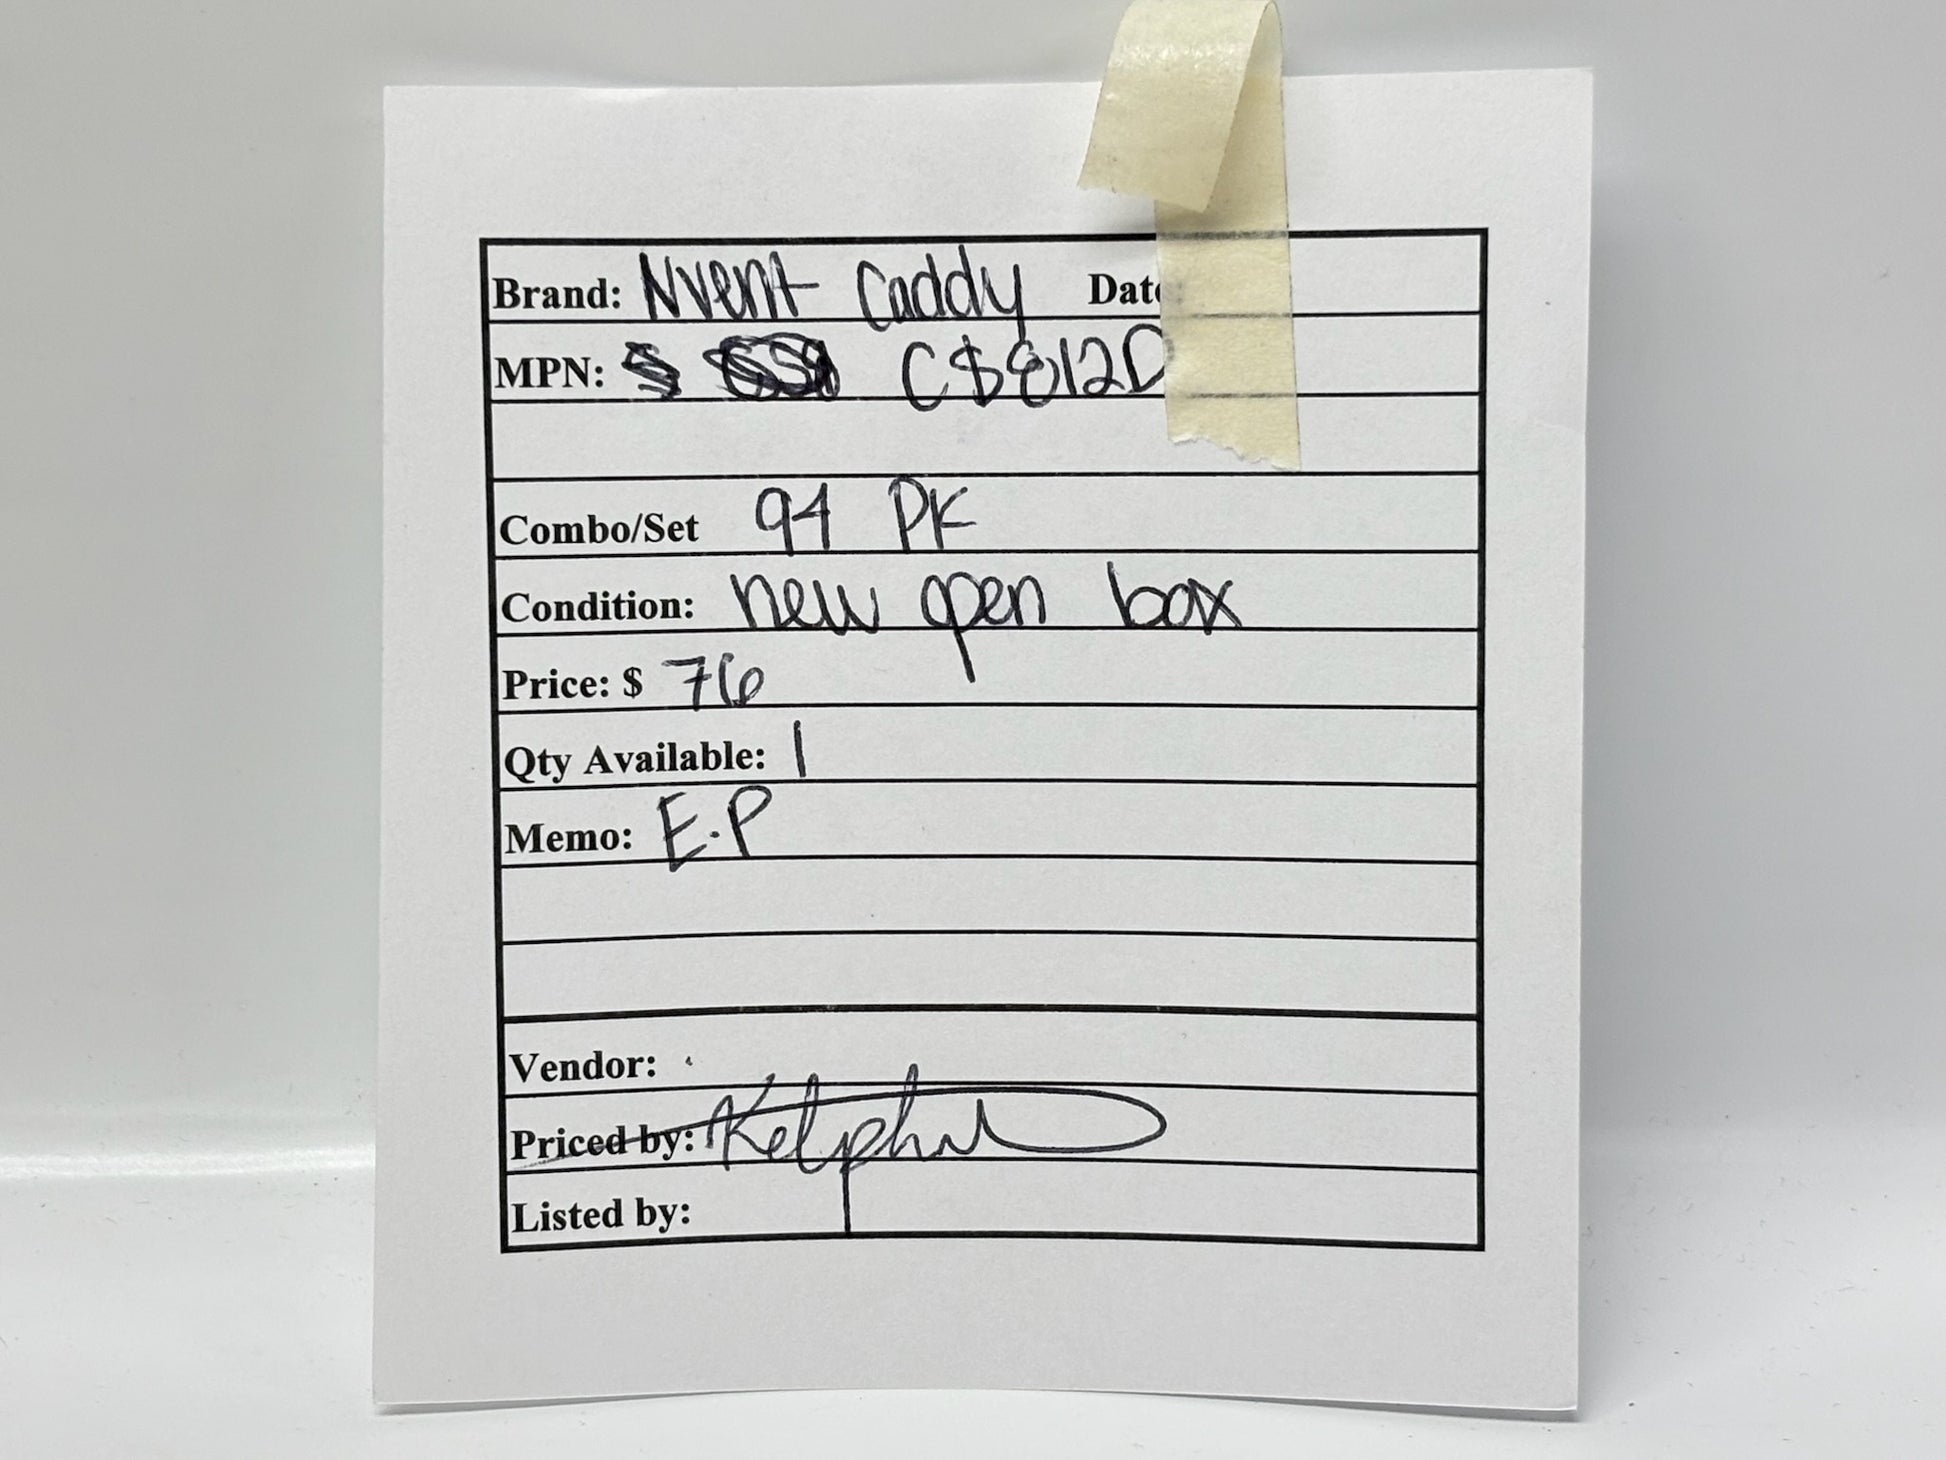 Brand: Nvent Caddy Date:
MPN: C$812D
Combo/Set 94 PK
Condition: new open box
Price: $ 76
Qty Available: 1
Memo: E.P
Vendor:
Priced by:
Listed by: